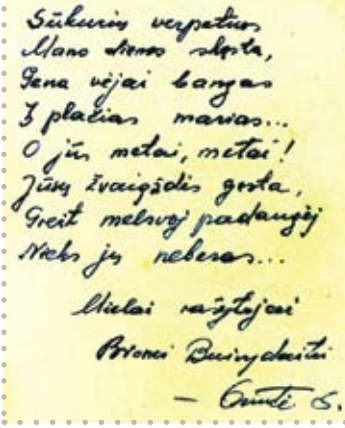 Sūkurių verpetuos
Mano dienos skęsta,
Gena vėjai bangas
Į plačias marias...
O jūs metai, metai!
Jūsų žvaigždės gęsta,
Greit melsvoj padangėj
Nieks jų neberas...
Mielai rašytojai
Bronei Buivydaitei
— S.